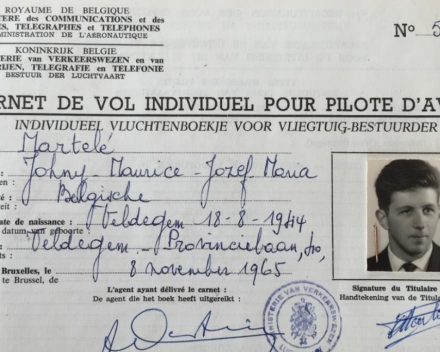 ROYAUME DE BELGIQUE
TERE des COMMUNICATIONS et des
ES, TELEGRAPHES et TELEPHONES
DMINISTRATION DE L'AÉRONAUTIQUE
KONINKRIJK BELGIE
TERIE van VERKEERSWEZEN en van
RIJEN, TELEGRAFIE en TELEFONIE
BESTUUR DER LUCHTVAART
No 5
RNET DE VOL INDIVIDUEL POUR PILOTE D'AV
INDIVIDUEEL VLUCHTENBOEKJE VOOR VLIEGTUIG-BESTUURDER
Martelé
Johny-Maurice-Jozef Maria
Belgische
ate de naissance : Veldegem 18-8-1944
datum van geboorte :
Veldegem - Provinciebaan,
Bruxelles, le 8 november 1965
te Brussel, de
L'agent ayant délivré le carnet :
De agent die het boek heeft uitgereikt :
Signature du Titulaire
Handtekening van de Titula
MINISTERIE VAN VERKEERSWEZEN